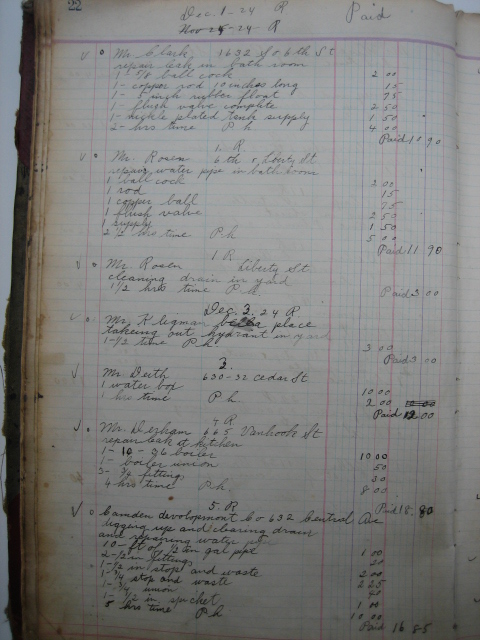 22
Dec. 1-24 R Paid
Nov 25-24 R
v o Mr. Clark 1632 So 6th St
repair leak in bath room
1- 5/8 ball cock 2 00
1- copper rod 10 inches long 15
1- 5 inch rubber float 75
1- flush valve complete 2 50
1- nickle plated tank supply 1 50
2- hrs time P h 4 00
Paid 10 90
1. R
v o Mr. Rosen 6th St
repair water pipe in bath room
1 ball cock 2 00
1 rod 15
1 copper ball 75
1 flush valve 2 50
1 supply 1 50
2 1/2 hrs time P h 5 00
Paid 11 90
1 R
v o Mr. Rosen Liberty St
cleaning drain in yard
1 1/2 hrs time P. h. Paid 3 00
Dec. 3. 24 R
v o Mr. Kligman place
takeing out hydrant in yard
1-1/2 time P h 3 00
Paid 3 00
3.
v Mr Deith 630-32 cedar St
1 water box 10 00
1 hrs time P h 2 00
Paid 12 00
4 R
v o Mr. Derham 665 Vanhook St
repair leak kitchen
1- boiler 10 00
1- boiler union 50
3- 3/4 fitting 30
4 hrs time P.h. 8 00
Paid 18. 80
5. R
v o Camden devolopment Co 632 Central Ave
digging up and clearing drain
and repairing water
10- ft of 1/2 in gal pipe 1 00
2-1/2 in fittings 20
1-1/2 in stop and waste 2 00
1-3/4 stop and waste 2 25
1- union 40
1- 1/2 in spicket 1 00
5 hrs time P h 10 00
Paid 16 85